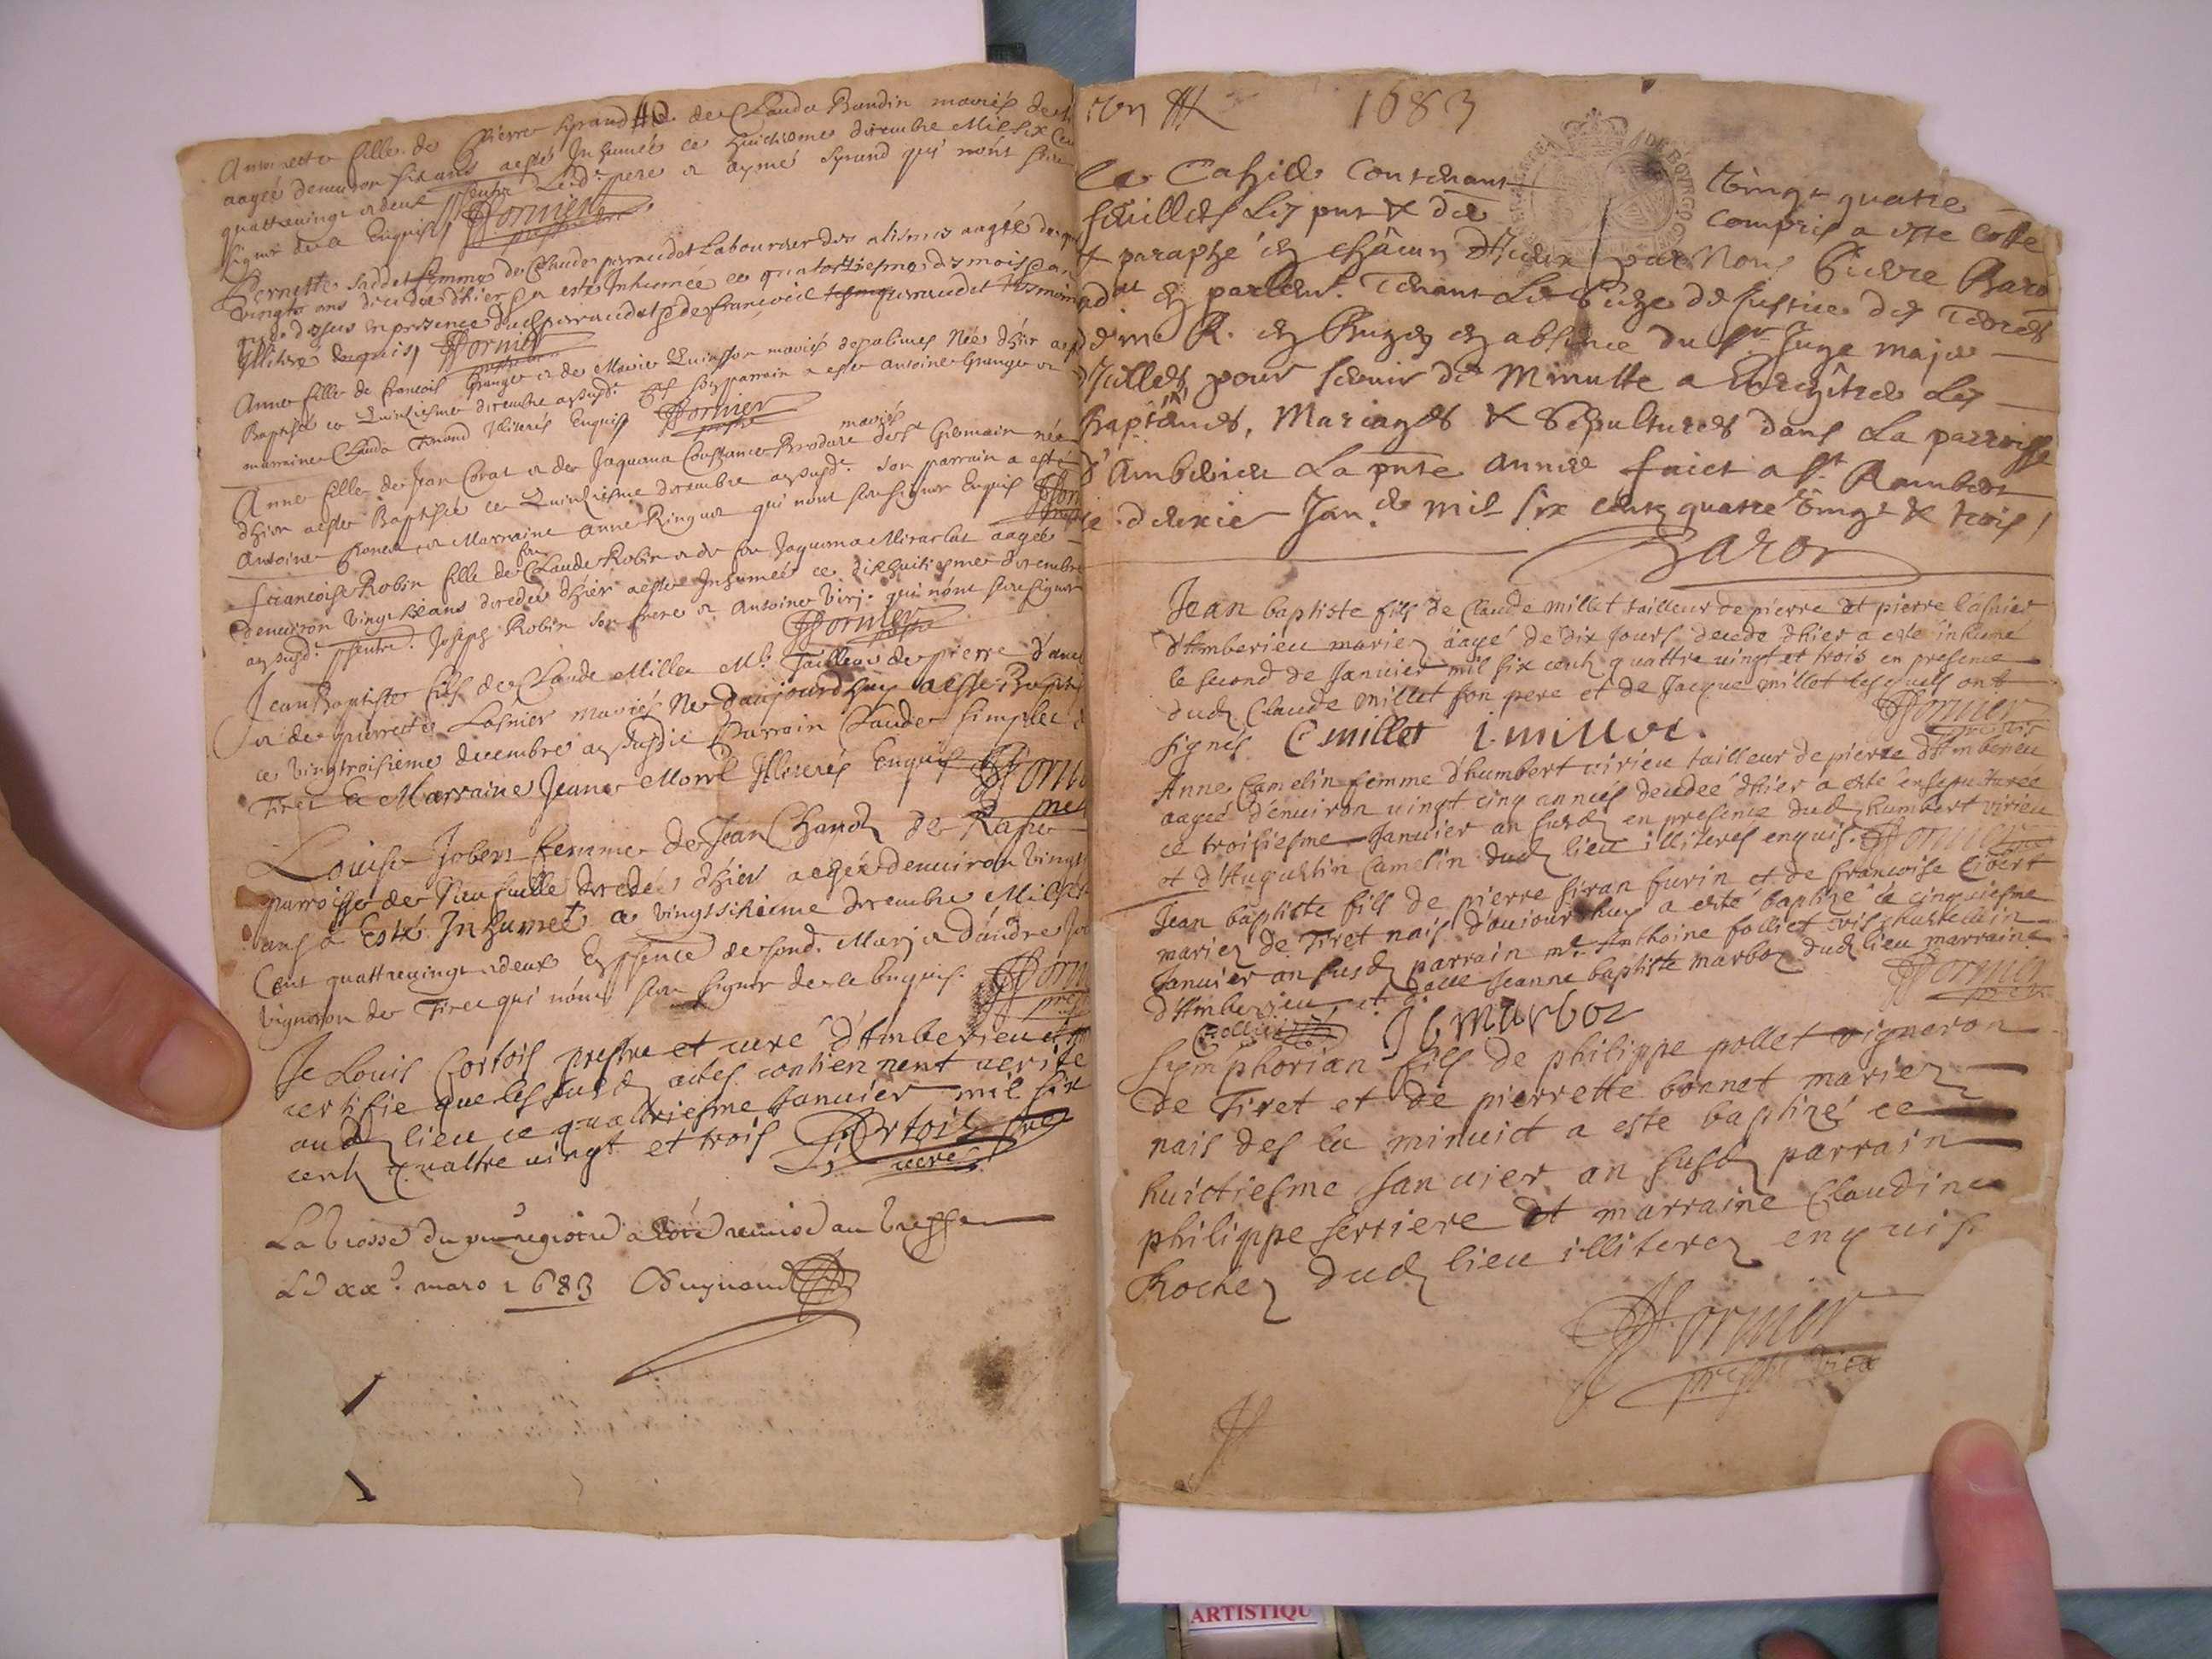 Antoinette fille de Pierre Syrand et de Clauda Baudin mariés
aagée denuiron six ans a esté Inhumée ce huictiesme decembre Mil six Cen
quattreuingt et deux psentz Led. pere et aymé Syrand qui nont sceu
signer de ce Enquis Fornier
prestre
Pernette Saddet femme de Claude perraudet Laboureur des alismes aagée de
vingts ans decedée dhier a esté Inhumée ce quatorziesme dy mois et an
que dessus en presence dud perraudet et de francois perraudet
Illiterés Enquis Fornier
Anne fille de francois Granger et de Marie Quinsson mariés Née dhier a esté
Baptisé ce Quinziesme decembre an susd. son parrain a esté Antoine Granger et
marraine Clauda Tenand Illiterés Enquis Fornier
prestre
mariés
Anne fille de Jean Corat et de Jaquema Constance Brodare de St Germain née
dhier a esté Baptisée ce Quinziesme decembre an susd. Son parrain a esté
Antoine et Marraine Anne Ringuet qui nont sceu signer Enquis For
feu
francoise Robin fille de Claude Robin et de feu Jaquema Miraclat aagée
denuiron vingt ans decedée dhier a esté Inhumée ce dixhuitiesme decembre
an susd. psentz. Joseph Robin son frere et Antoine qui nont sceu signer
Fornier
prestre
Jean Baptiste fils de Claude Millet Me Tailleur de pierre d'am
et de pierrette Lasnier mariés Né daujourdhuy a esté Bapti
ce vingtroisieme decembre an susdit Parrain Claude simplet
Tiret et Marraine Jeane Morel Illiterés Enquis Forni
pres
Louise Jobert femme de Jean Chanel de
parroisse de decedée dhier aagée denuiron vingt
ans a Esté Inhumée ce vingtsixieme decembre Mil six
Cent quattreuingt et deux En psence de sond. Mary et d'andre
vigneron de Tiret qui nont sceu signer de ce Enquis. Forn
pres
Je Louis Cortois prestre et curé d'Amberieu
certifie que les susd actes contiennent verité
aud lieu ce quattriesme Januier mil six
centz quattre uingt et trois L Cortois pre
curé
La grosse du pnt registre a esté remise au greffe
Le xx. mars 1683 Duynand
1683
Ce Cahier Contenant Vingt quatre
feuillets Les pnt & der Compris a este Cotte
& paraphé en chacun d'Iceux par Nous Pierre Baro
adat en parlemt. Tenant Le Siege de Justice des Terres
de me R. en Bugey en absence du Sr Juge maje
d'Icelles pour seruir de Minutte a Enregistrer Les
Baptemes, Mariages & Sepultures dans La parroisse
d'Amberieu La pnte année faict a St. Rambert
le deuxie Jan. de mil six centz quatre vingt & trois
Baror
Jean baptiste fils de Claude millet tailleur de pierre et pierre l'asnier
d'Amberieu mariez aagé de dix Jours decede dhier a esté inhumé
le second de Januier mil six centz quattre uingt et trois en presence
dud Claude millet son pere et de Jacque millet lesquels ont
signés C millet i. millet. Fornier
Anne Camelin femme d'humbert uirieu tailleur de pierre d'Amberieu
aagée d'enuiron uingt cinq années decedée dhier a esté ensepulturee
ce troisiesme Januier an susd en presence dud humbert virieu
et d'Augustin Camelin dud lieu illiteres enquis. Fornier
Jean baptiste fils de pierre siran furin et de francoise Cibert
mariez de Tiret nais d'auiourdhuy a esté baptizé le cinquiesme
Januier an susd parrain me Anthoine folliet chastelain
d'Amberieu et delle Jeanne baptiste marboz dud lieu marraine
folliet J b marboz Fornier
Symphorian fils de philippe pollet vigneron
de Tiret et de pierrette bonnet mariez
nais des la minuict a este baptizé ce
huictiesme Januier an susd parrain
philippe serriere et marraine Claudine
Rochez dud lieu illiterez enquis
Fornier
prestre vicr
ARTISTIQU